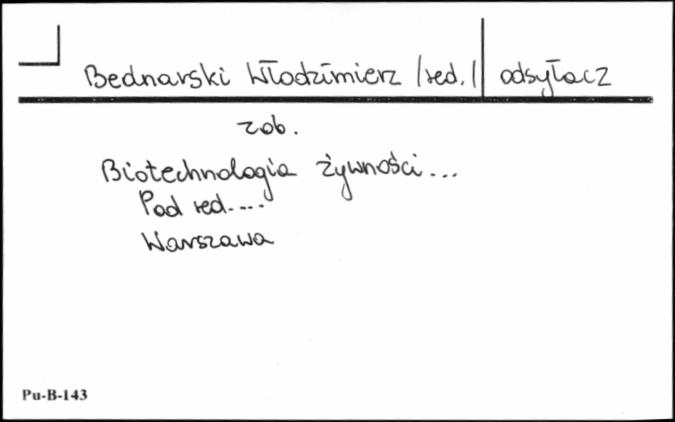 Bednarski Włodzimierz /red./ odsyłacz
zob.
Biotechnologia żywności...
Pod red....
Warszawa
Pu-B-143